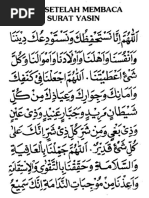 SETELAH MEMBACA
SURAT YASIN
اَللّٰهُمَّ اِنَّا نَسْتَحْفِظُكَ وَنَسْتَوْدِعُكَ دِيْنَنَا
وَاَنْفُسَنَا وَاَهْلَنَا وَاَوْلَادَنَا وَاَمْوَالَنَا وَكُلَّ
شَيْءٍ اَعْطَيْتَنَا. اَللّٰهُمَّ اجْعَلْنَا فِيْ كَنَفِكَ
وَاَمَانِكَ وَجِوَارِكَ وَعِيَاذِكَ مِنْ كُلِّ
شَيْطَانٍ مَرِيْدٍ وَجَبَّارٍ عَنِيْدٍ وَذِيْ عَيْنٍ
وَذِيْ بَغْيٍ وَمِنْ شَرِّ كُلِّ ذِيْ شَرٍّ اِنَّكَ عَلَى كُلِّ
شَيْءٍ قَدِيْرٌ. اَللّٰهُمَّ جَمِّلْنَا بِالْعَافِيَةِ
وَالسَّلَامَةِ وَحَقِّقْنَا بِالتَّقْوَى وَالْاِسْتِقَامَةِ
وَاَعِذْنَا مِنْ مُوْجِبَاتِ النَّدَامَةِ اِنَّكَ سَمِيْعُ